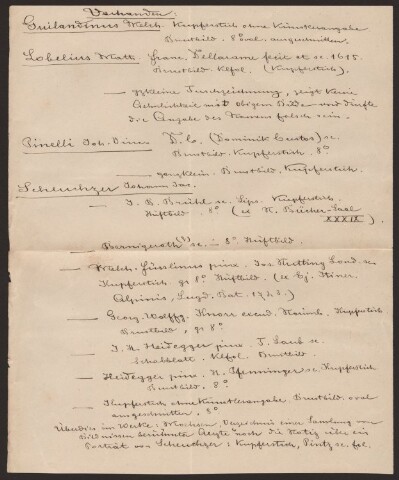 Vorhanden:
Guilandinus Melch. Kupferstich ohne Künstlerangabe
Brustbild. 8° oval. ausgeschnitten.
Lobelius Matt. Franc. Dellarame fecit et sc. 1615.
Brustbild. Klfol. (Kupferstich).
— Tuschzeichnung, zeigt keine
Aehnlichkeit mit obigem Bilde und dürfte
die Angabe des Namens falsch sein.
Pinelli Joh. Vinc. D. C. (Dominik Custos) sc.
Brustbild. Kupferstich. 8°
— ganz klein. Brustbild, Kupferstich.
Scheuchzer Johann Jac.
— I. B. Brühl sc. Lips. Kupferstich.
Hüftbild. 8° (ex N. Bücher-Saal
XXXIX).
— Bernigeroth (?) sc. 8° Hüftbild.
— Melch. Füsslinus pinx. Jos. Nutting Lond. sc.
Kupferstich gr 8° Hüftbild. (ex Ej. Itiner.
Alpinis, Lugd. Bat. 1723.)
— Georg. Wolffg. Knorr excud. Norimb. Kupferstich
Brustbild, gr 8°
— I. H. Heidegger pinx. T. Laub sc.
Schabblatt. Klfol. Brustbild.
— Heidegger pinx. H. Pfenninger sc. Kupferstich
Brustbild. 8°
— Kupferstich ohne Künstlerangabe Brustbild. oval
ausgeschnitten. 8°
Überdies im Werke: Moehsen, Verzeichnis einer Samlung von
Bildnissen berühmter Aerzte noch die Notiz über ein
Porträt von Scheuchzer: Kupferstich, Pintz sc. fol.